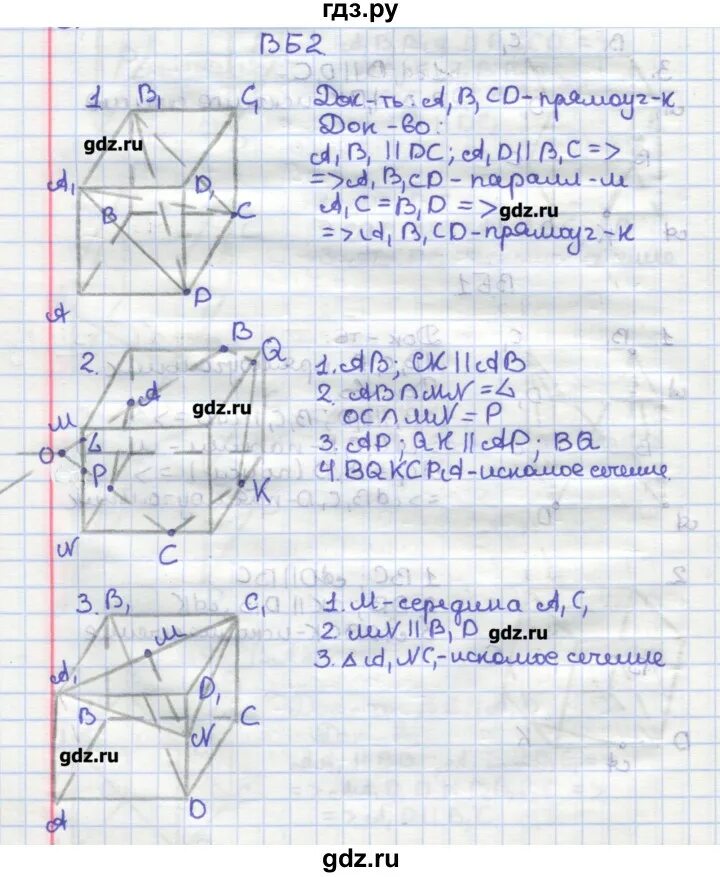 гдз.ру
ВБ2
1. B₁ C₁
A₁ D₁
B C
A D
Док-ть: A₁B₁CD-прямоуг-к
Док-во:
A₁B₁ || DC; A₁D || B₁C =>
=> A₁B₁CD - паралл-м
A₁C = B₁D =>
=> A₁B₁CD-прямоуг-к
gdz.ru
gdz.ru
2. B Q
A
M
O L
P K
N C
1. AB; CK || AB
2. AB ∩ MN = L
OC ∩ MN = P
3. AP; QK || AP; BQ
4. BQKCPA-искомое сечение.
gdz.ru
3. B₁ C₁
M
A₁ D₁
B C
N
A D
1. M-середина A₁C₁
2. MN || B₁D
3. △ A₁NC₁-искомое сечение
gdz.ru
gdz.ru
gdz.ru